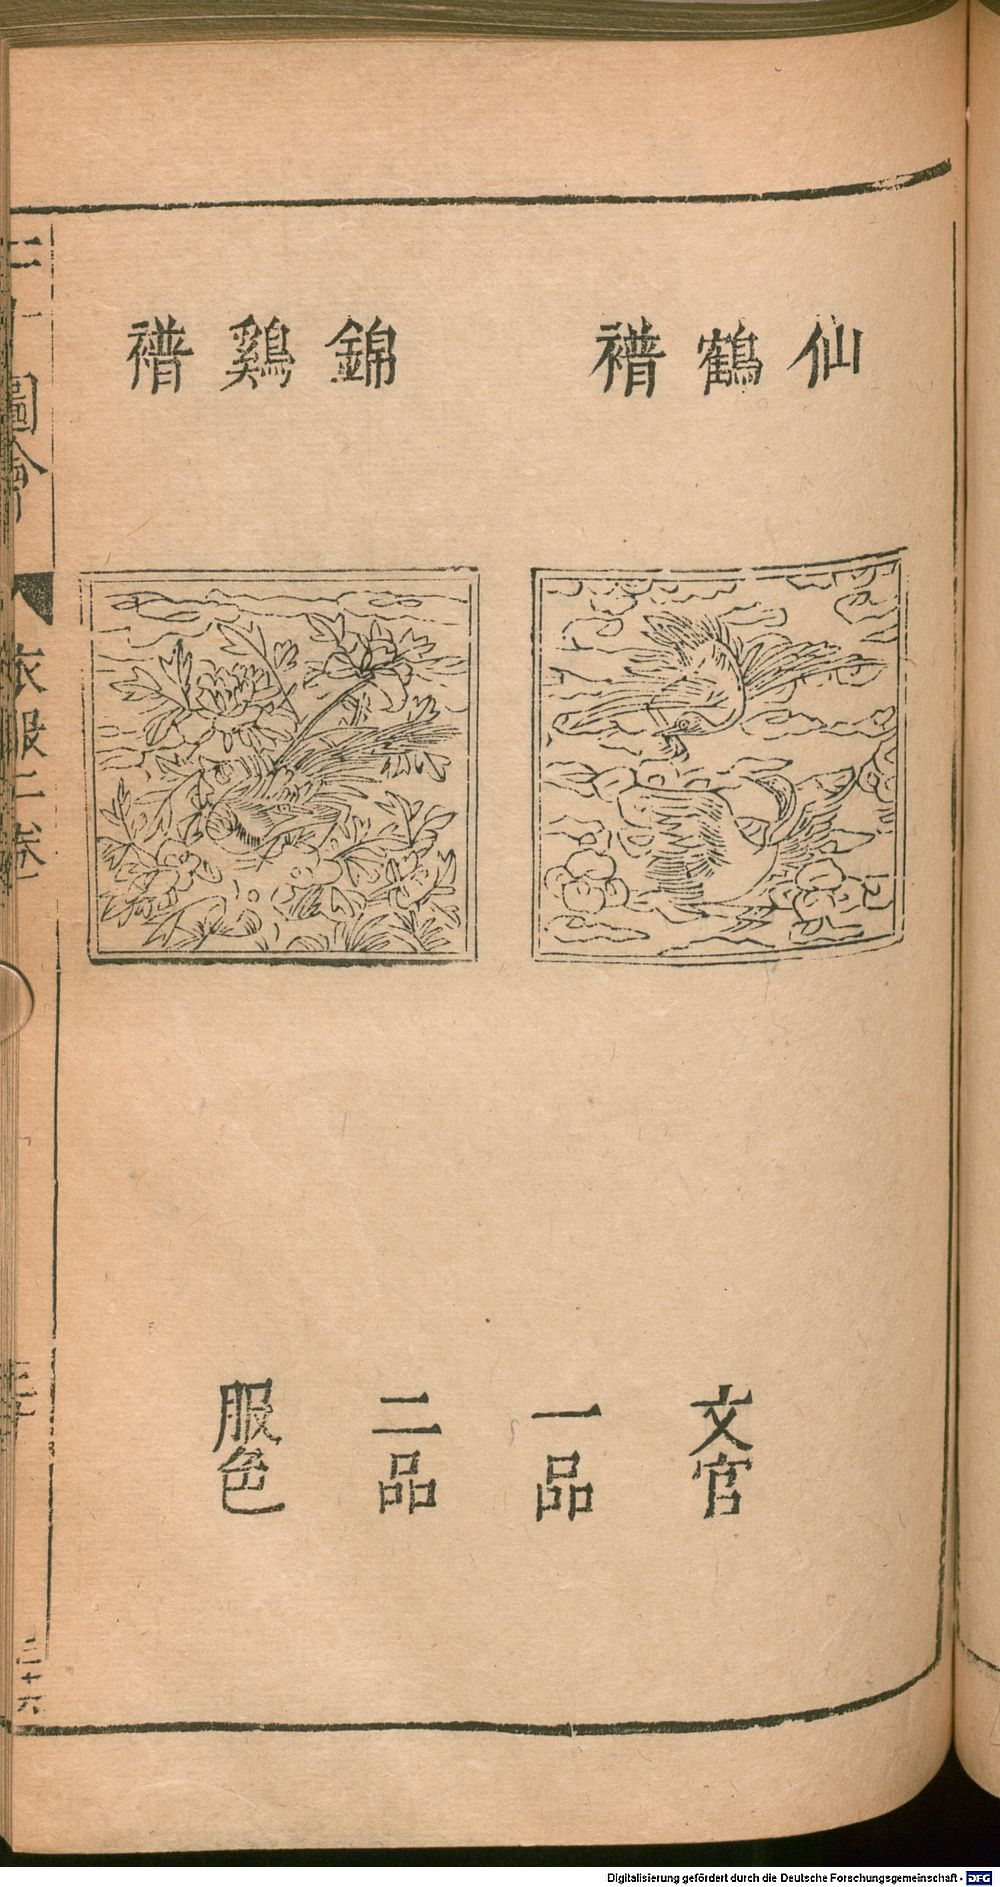 仙鶴𧝓
錦鷄𧝓
文官
一品
二品
服色
圖會
衣服二卷
三十六
Digitalisierung gefördert durch die Deutsche Forschungsgemeinschaft - DFG